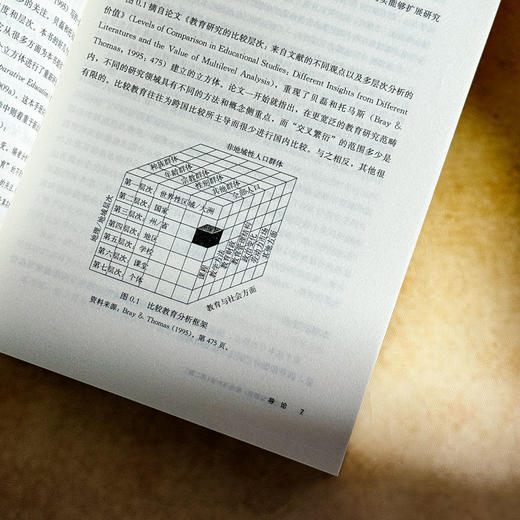 实能够扩展研究
图0.1摘自论文《教育研究的比较层次：来自文献的不同观点以及多层次分析的
价值》(Levels of Comparison in Educational Studies: Different Insights from Different
Literatures and the Value of Multilevel Analysis)，重现了贝磊和托马斯（Bray &
Thomas, 1995, 475）建立的立方体。论文一开始就指出，在更宽泛的教育研究范畴
内，不同的研究领域具有不同的方法和概念侧重点，而“交叉繁衍”的范围多少是
有限的。比较教育往往为跨国比较所主导而很少进行国内比较。与之相反，其他很
非地域性人口群体
种族群体
年龄群体
宗教群体
性别群体
其他群体
全部人口
地理/地域层次
第一层次：世界性区域/大洲
第二层次：国家
第三层次：州/省
第四层次：地区
第五层次：学校
第六层次：课堂
第七层次：个体
课程
教学方法
教育财政
政治变化
劳动力市场
其他方面
教育与社会方面
图0.1 比较教育分析框架
资料来源：Bray & Thomas (1995)，第475页。
导论 7